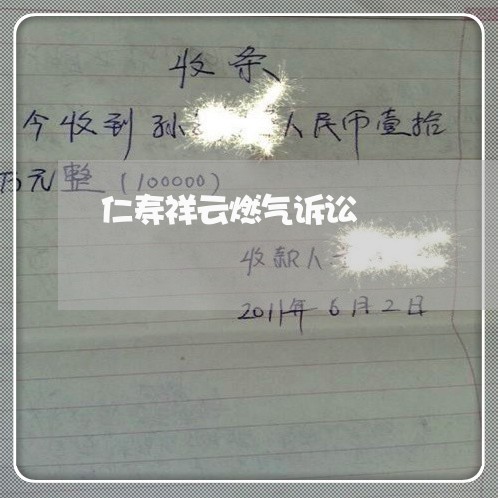 收条
今收到孙 人民币壹拾
万元整(100000)
仁寿祥云燃气诉讼
收款人
2011年6月2日